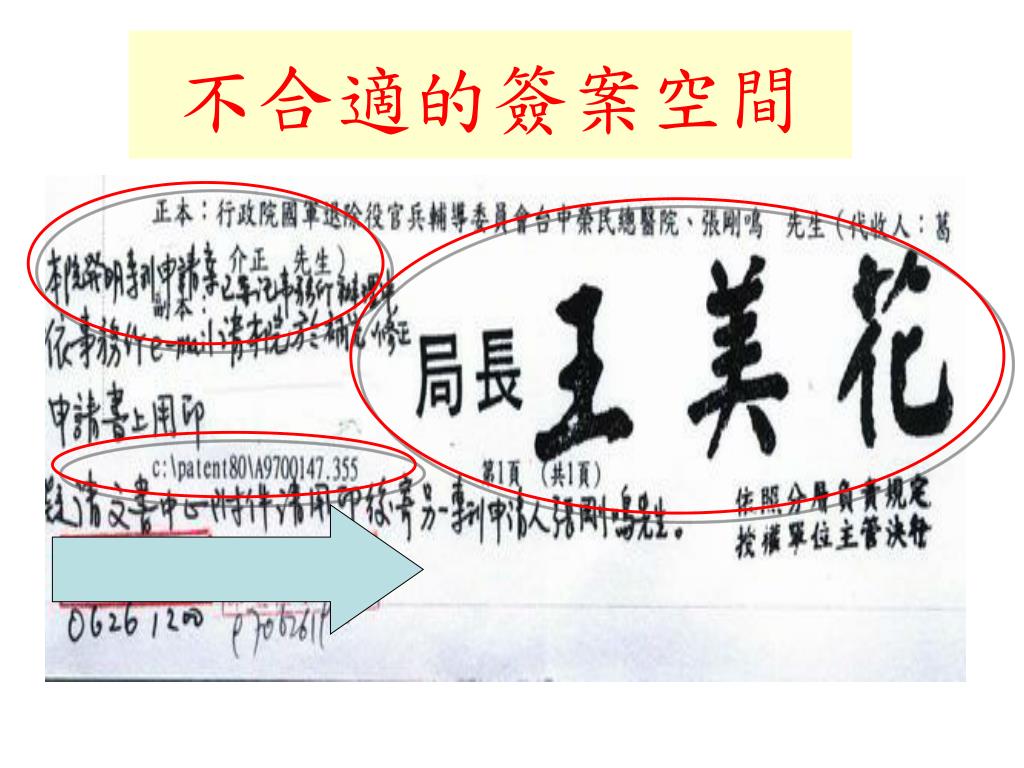 不合適的簽案空間
正本：行政院國軍退除役官兵輔導委員會台中榮民總醫院、張剛鳴　先生（代收人：葛
介正　先生）
本院發明專利申請案
副本：
依事務所e-mail請本院於補充修正
局長王美花
申請書上用印
c:\patent80\A9700147.355
第1頁　(共1頁)
請文書中心附件請用印後寄另一專利申請人張剛鳴先生。
依照分層負責規定
授權單位主管決行
06261200